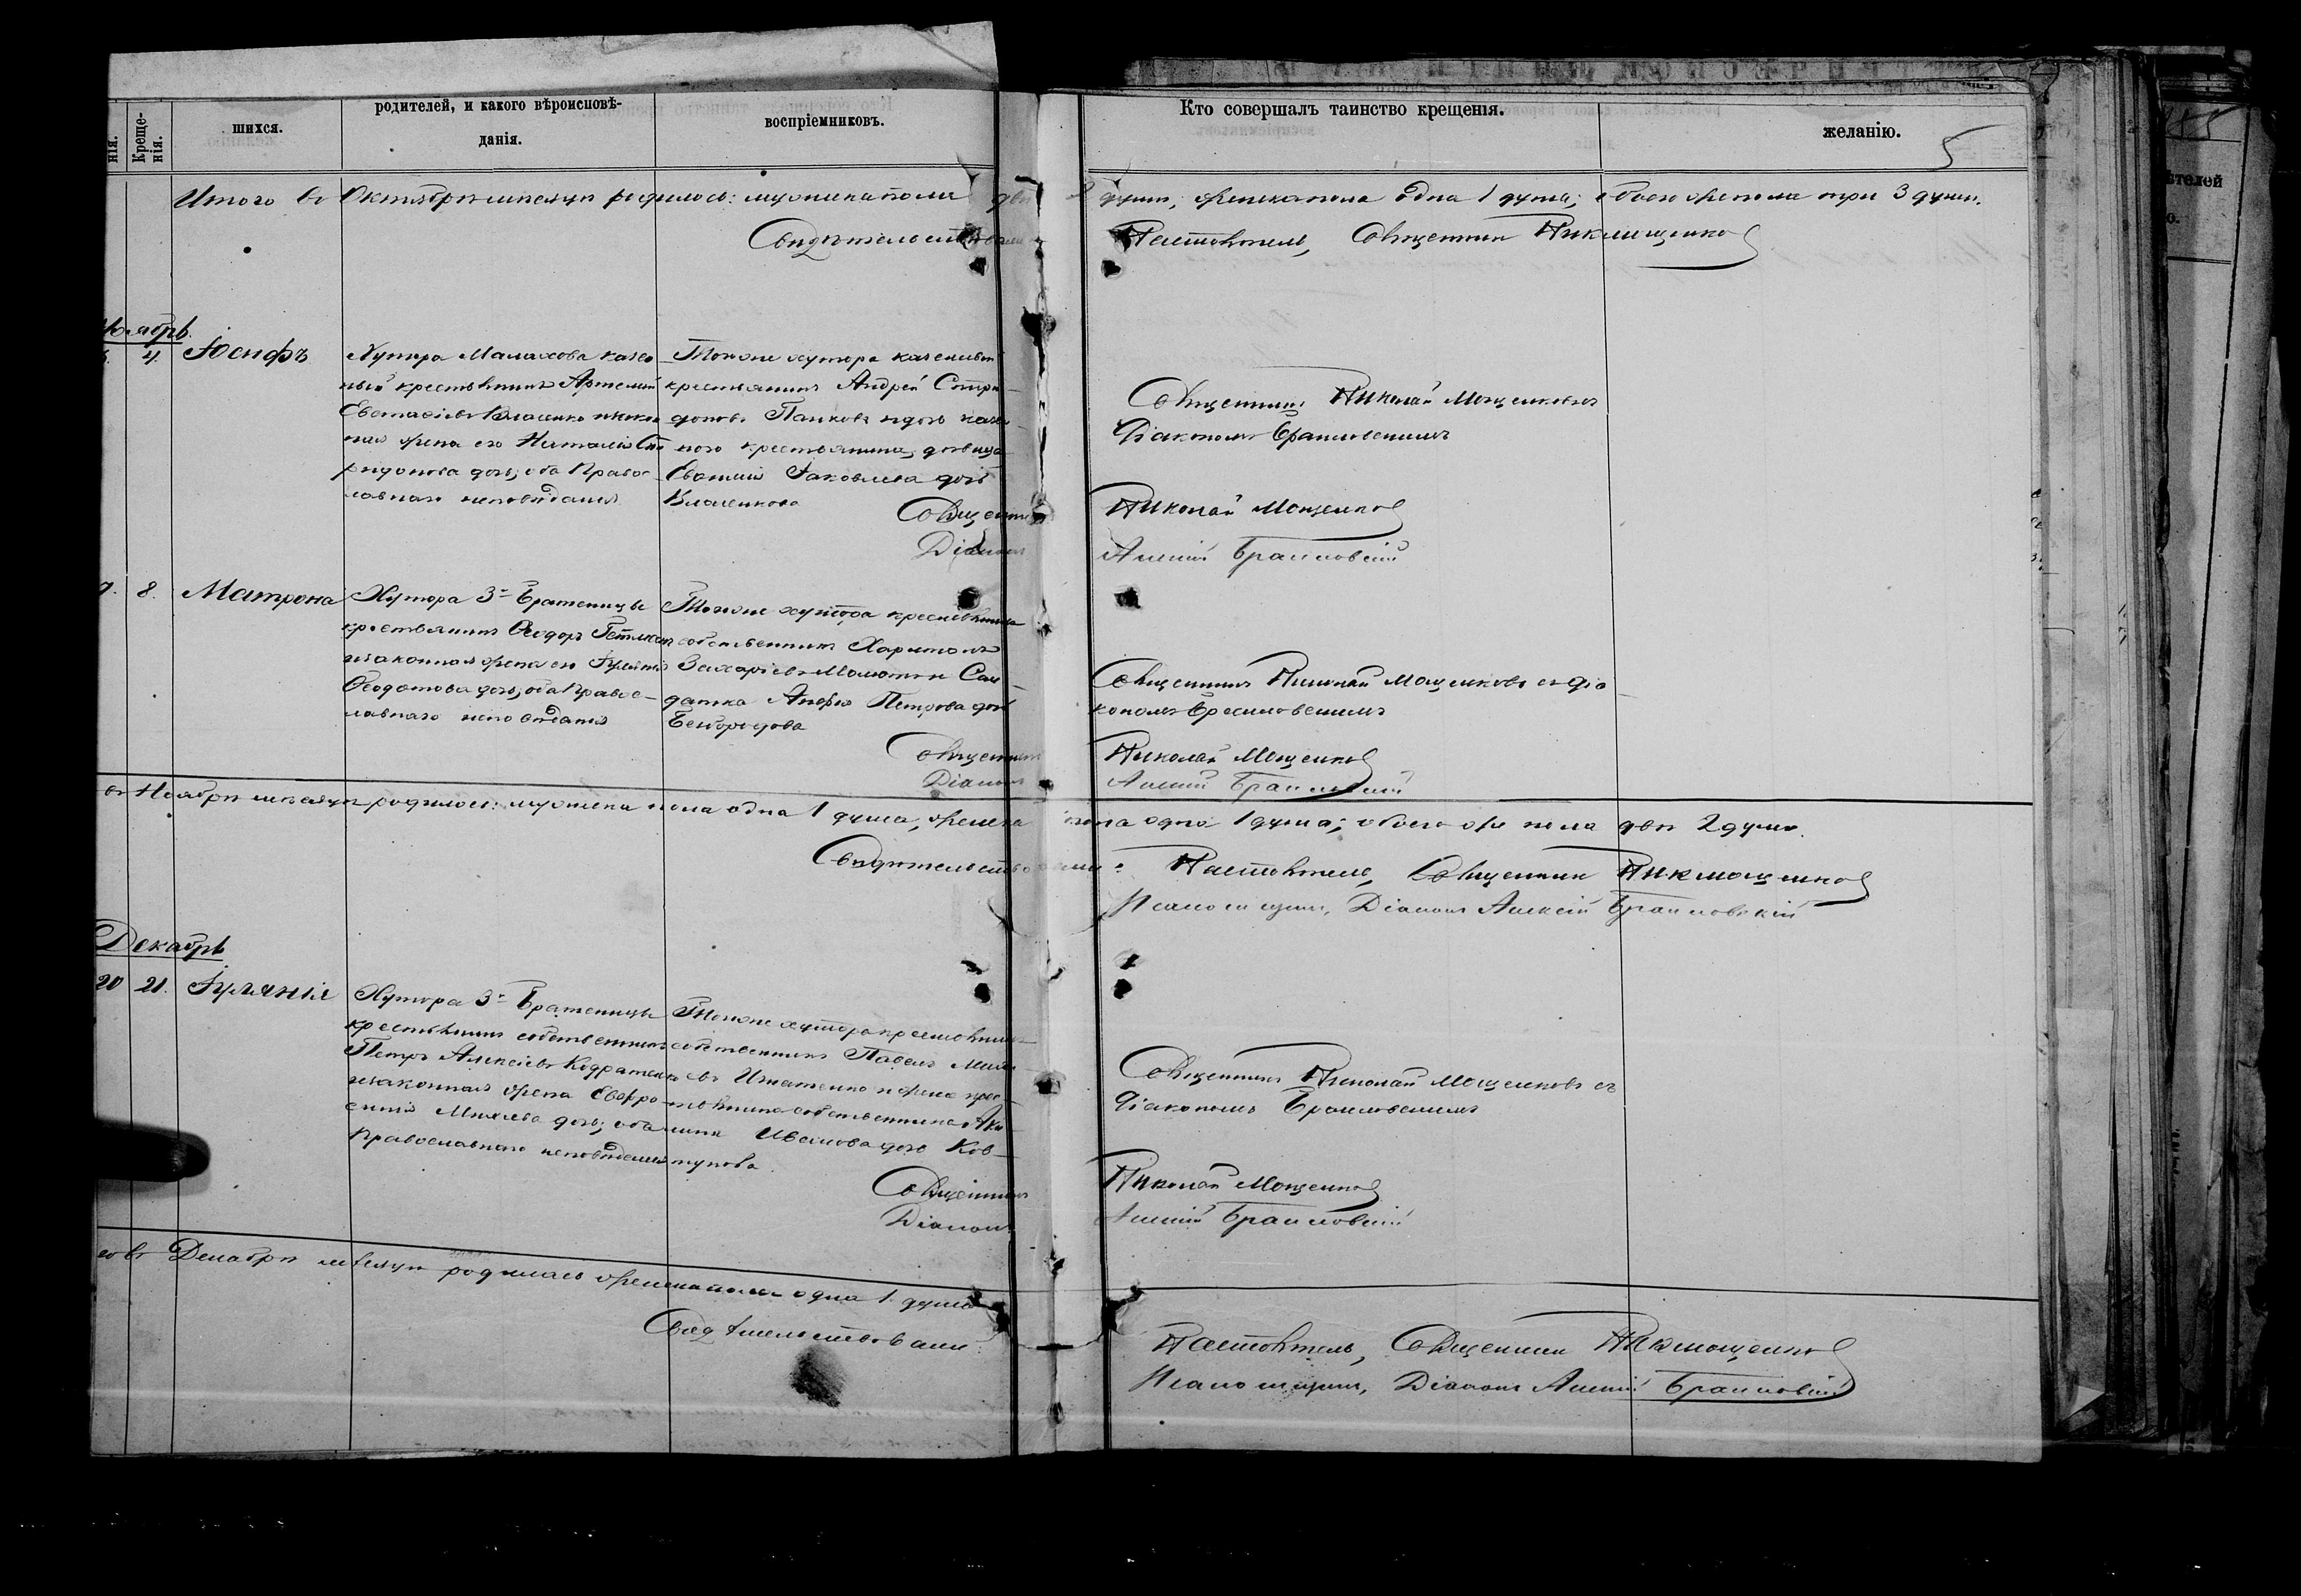 нія. Креще-
нія.
шихся.
родителей, и какого вѣроисповѣ-
данія.
воспріемниковъ.
Кто совершалъ таинство крещенія.
желанію.
5
Итого въ Октябрѣ мѣсяцѣ родилось: мужеска пола двѣ 2 души, женска пола одна 1 душа; обоего же пола три 3 души.
Свидѣтельствовали
Настоятель, Священникъ Ник Мощенко
Ноябрь.
4. Іосифъ
Хутора Малахова казен
ный крестьянинъ Артемій
Евстафіевъ Власенко и закон
ная жена его Наталія Спи
ридонова дочь; оба Право-
славнаго исповѣданія
Тогоже хутора казенный
крестьянинъ Андрей Спири-
доновъ Панковъ и дочь казен
наго крестьянина, дѣвица
Іаковлева дочь
Власенкова
Священникъ Николай Мощенковъ съ
Діакономъ Браиловскимъ
Священникъ Николай Мощенко
Діаконъ Алексій Браиловскій
7. 8. Матрона
Хутора 3й Братеницы
крестьянинъ Ѳеодоръ
и законная жена его Іуліанія
Ѳеодотова дочь; оба Право-
славнаго исповѣданія
Тогоже хутора крестьянинъ
собственникъ Харитонъ
Захаріевъ и Сол-
датка Петрова дочь
Безбородова
Священникъ Николай Мощенковъ съ діа-
кономъ Браиловскимъ
Священникъ Николай Мощенко
Діаконъ Алексій Браиловскій
въ Ноябрѣ мѣсяцѣ родилось: мужеска пола одна 1 душа, женска пола одна 1 душа; обоего же пола двѣ 2 души.
Свидѣтельствовали: Настоятель, Священникъ Ник Мощенко
Псаломщикъ, Діаконъ Алексій Браиловскій
Декабрь
20 21. Іуліанія
Хутора 3й Братеницы
крестьянинъ собственникъ
Петръ Алексіевъ Кодратенко
и законная жена Евфро-
синія Михаева дочь; оба
Православнаго исповѣданія
Тогоже хутора крестьянинъ
собственникъ Павелъ Миха
евъ Игнатенко и жена крес-
тьянина собственника Аки
лина Иванова дочь Ков-
тунова.
Священникъ Николай Мощенковъ съ
Діакономъ Браиловскимъ
Священникъ Николай Мощенко
Діаконъ Алексій Браиловскій
въ Декабрѣ мѣсяцѣ родилась женска пола одна 1 душа
Свидѣтельствовали:
Настоятель, Священникъ Ник Мощенко
Псаломщикъ, Діаконъ Алексій Браиловскій